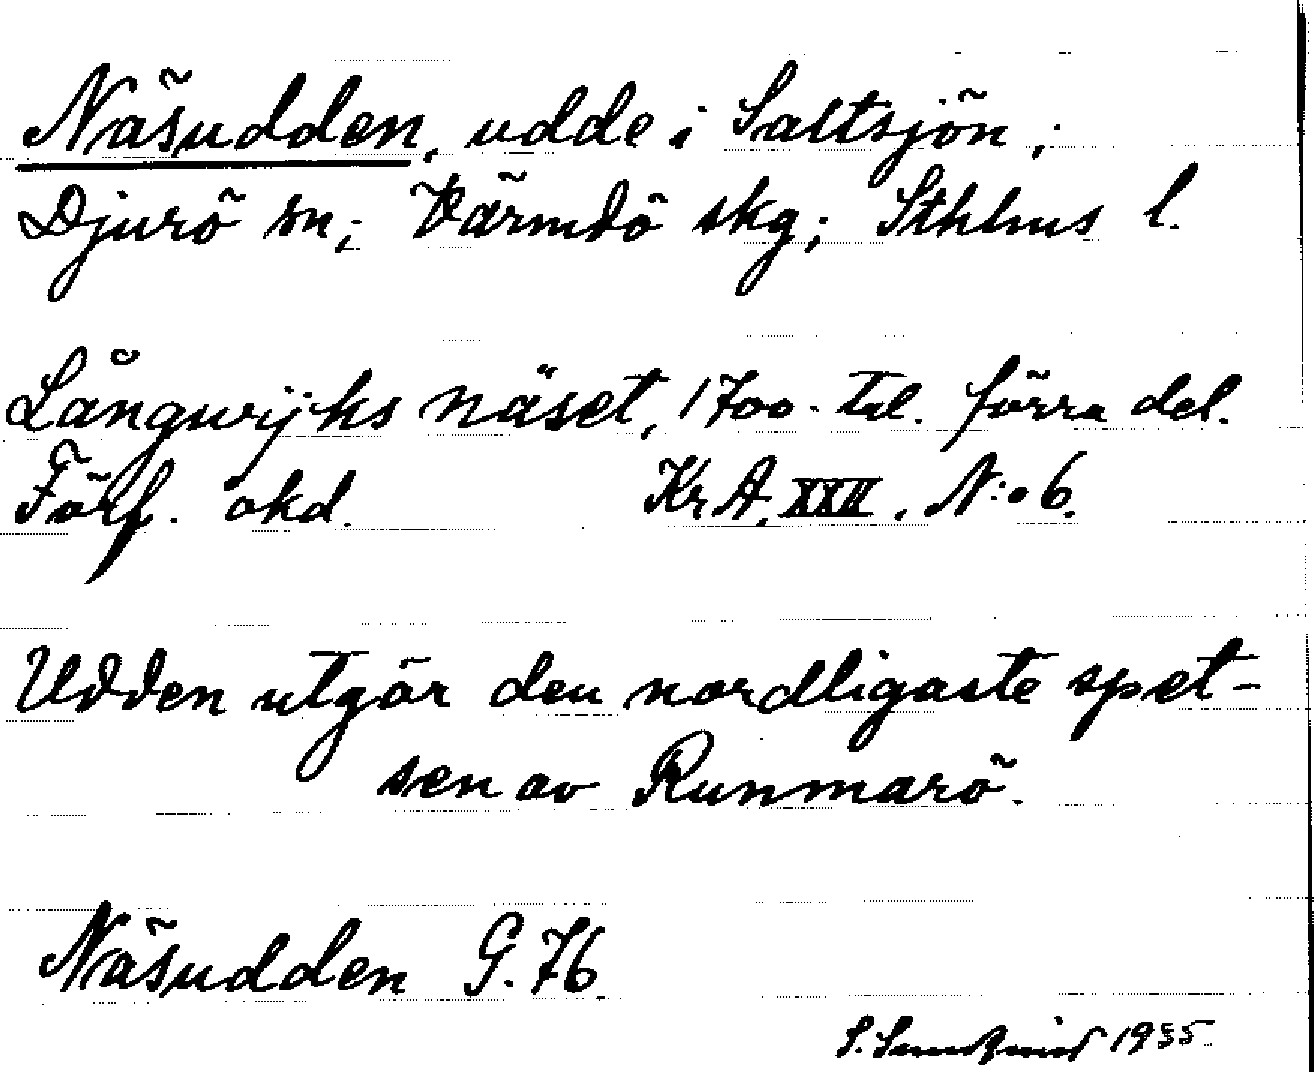 Näsudden, udde i Saltsjön;
Djurö sn; Värmdö skg; Sthlms l.
Långwijks näset, 1700-tal. förra del.
Förf. okd. Kr A. XXII. N:o 6.
Udden utgör den nordligaste spet-
sen av Runmarö.
Näsudden G. 76
S. 1935